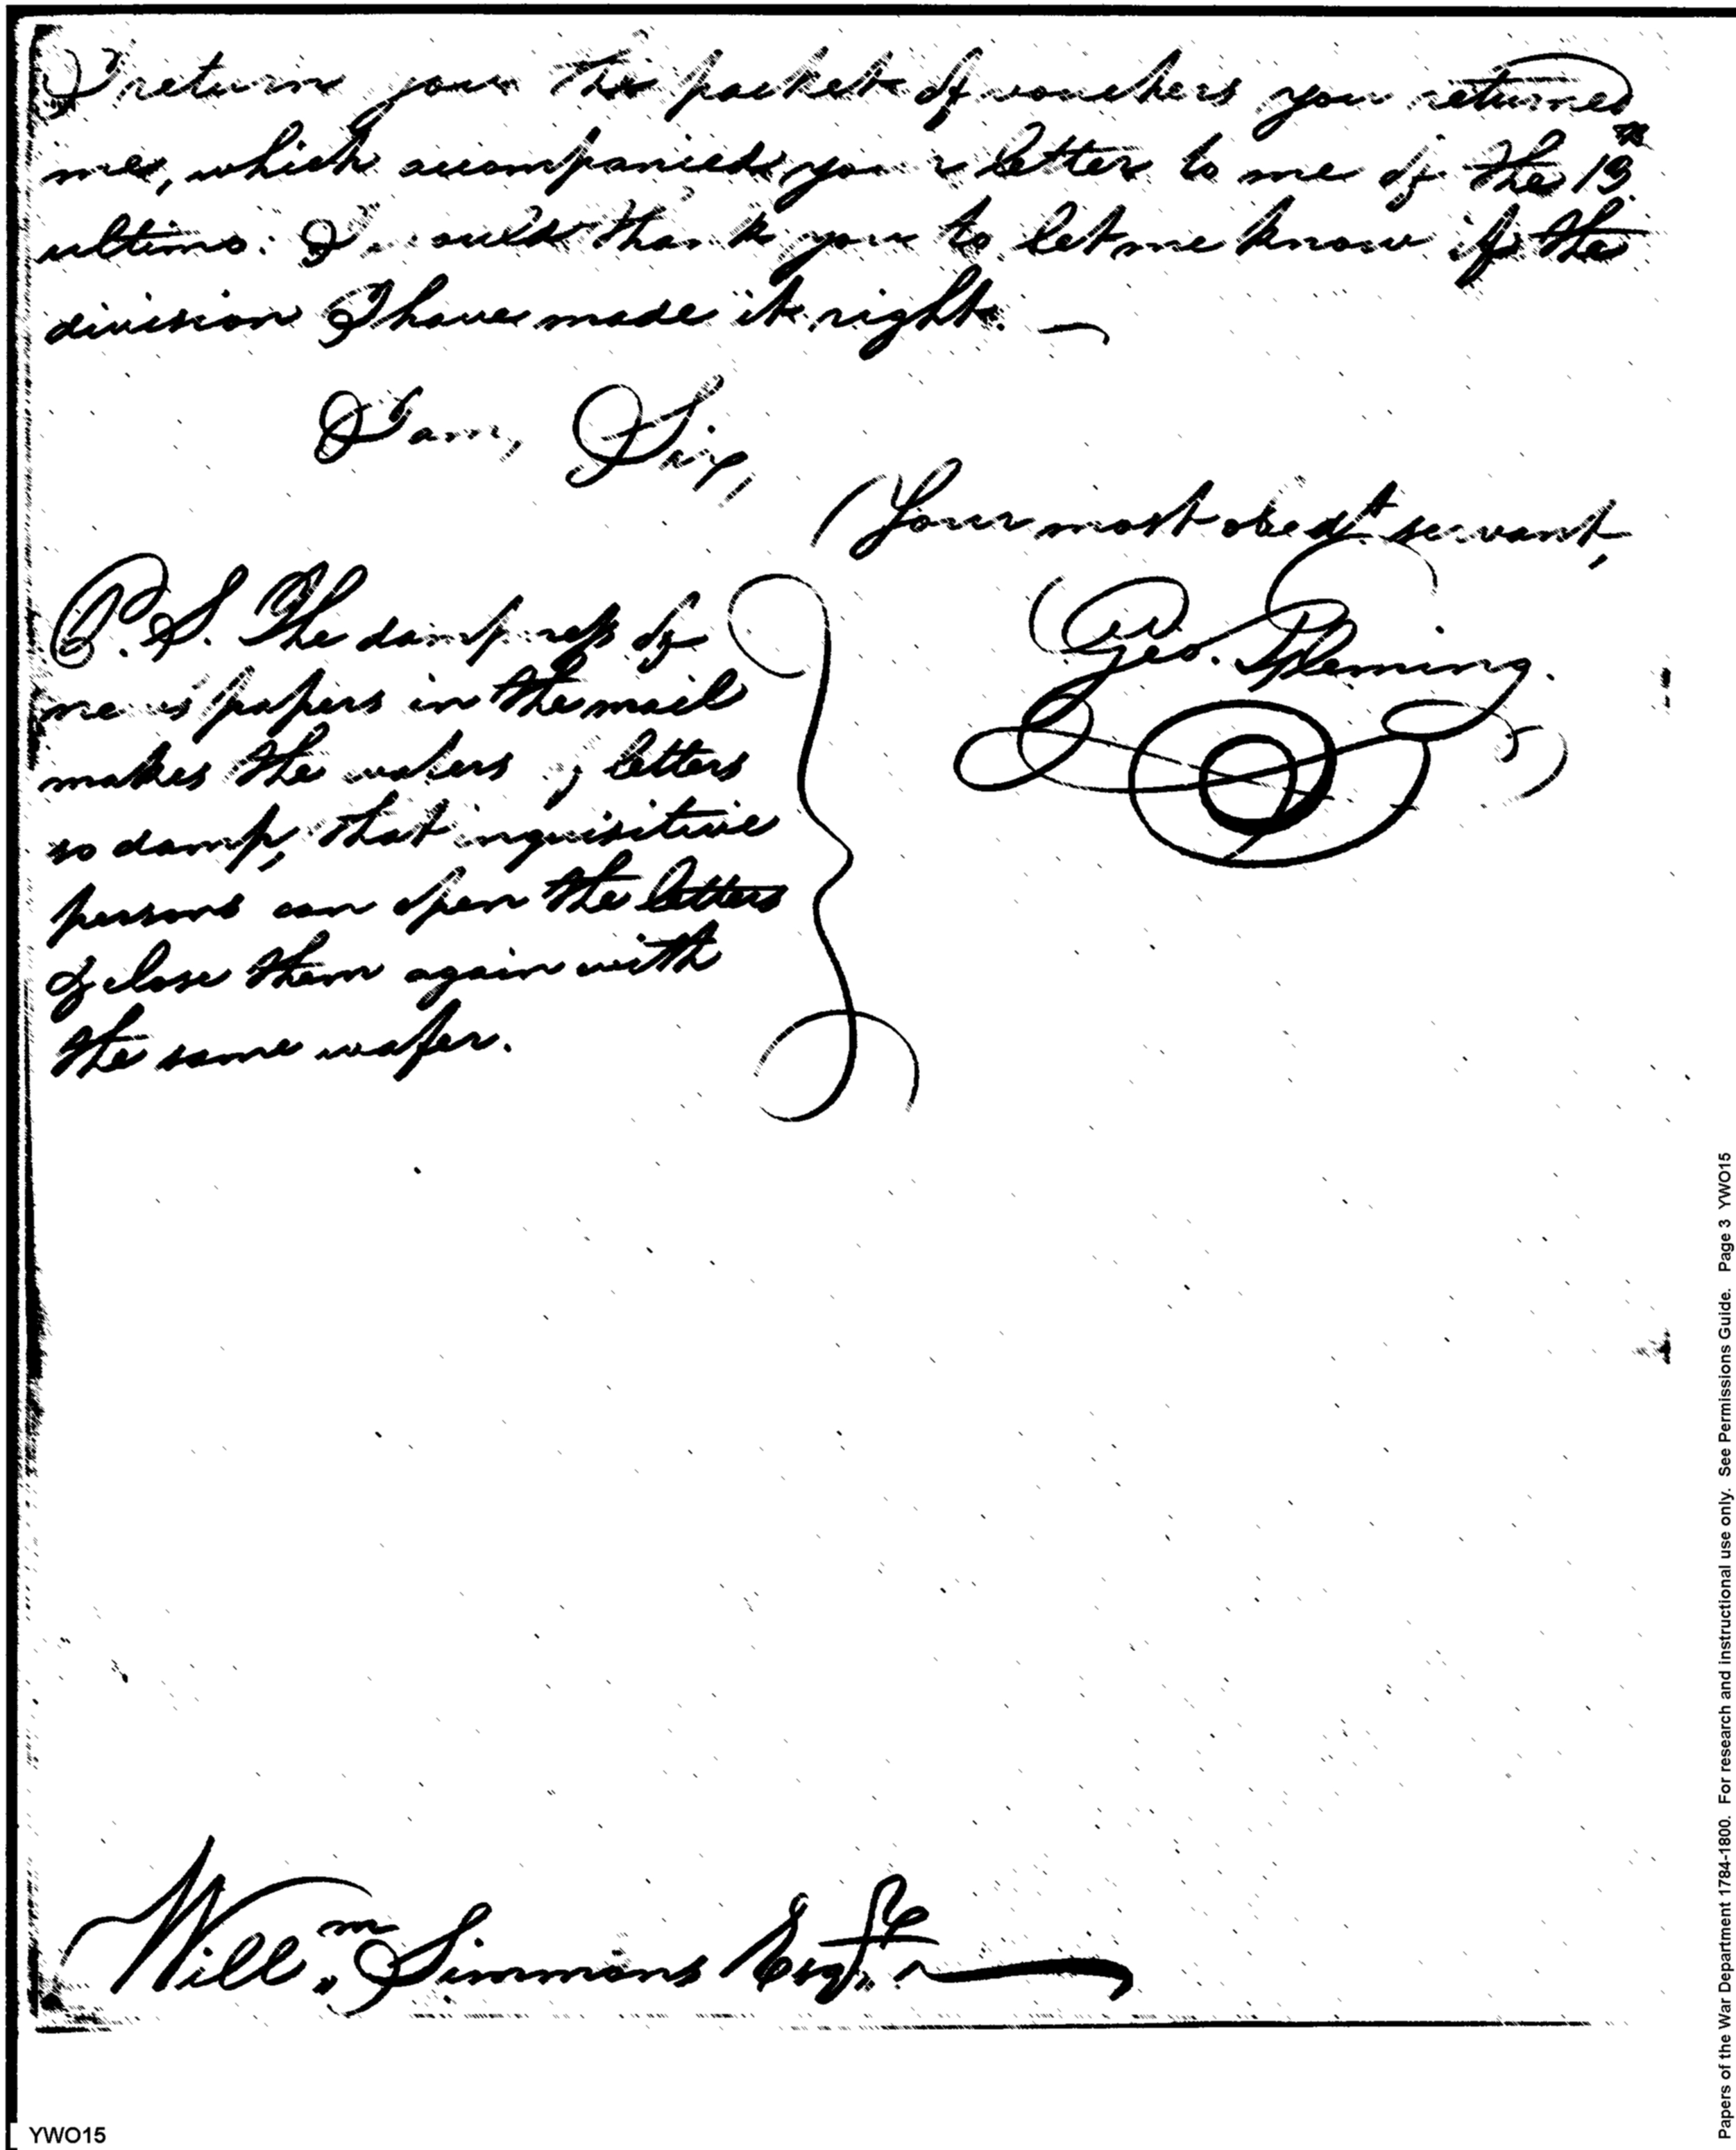 I return you the packet of vouchers you returned
me, which accompanied your letter to me of the 13th
ultimo. I would thank you to let me know if the
division I have made it right. —
I am, Sir,
Your most obedt. servant,
Geo. Fleming.
P.S. The dampness of
news papers in the mail
makes the wafers of letters
so damp, that inquisitive
persons can open the letters
& close them again with
the same wafer.
Willm. Simmons Esqr.
Papers of the War Department 1784-1800. For research and instructional use only. See Permissions Guide. Page 3 YWO15
YWO15